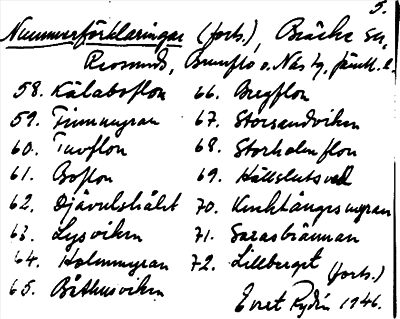 5.
Nummerförklaringar (forts.), Bräcke sn,
Revsunds, Brunflo o. Näs tg, Jämtl. l.
58. Kälaboflon
59. Finnmyran
60. Tuvflon
61. Boflon
62. Djävulshålet
63. Lysviken
64. Holmmyran
65. Båthusviken
66. Bergflon
67. Storsandviken
68. Storholmflon
69. Hällslutsved
70. Kvarnhångsmyran
71. Sarasbrännan
72. Lillberget (forts.)
1946.